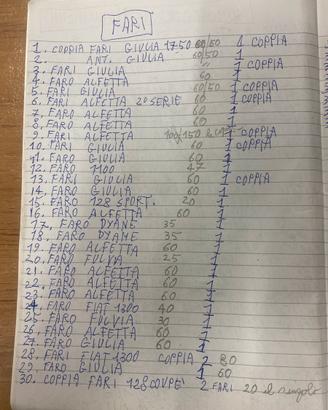 FARI
1. COPPIA FARI GIULIA 1750 60/50 1 COPPIA
2. ANT. GIULIA 60/50 1
3. FARI GIULIA " 1 COPPIA
4. FARO ALFETTA 60 1
5. FARI GIULIA 60/50 1 COPPIA
6. FARI ALFETTA 2ª SERIE 60 1 COPPIA
7. FARO ALFETTA 60 1
8. FARO ALFETTA 60 1
9. FARI ALFETTA 100/150 1 COPPIA
10. FARI GIULIA 60 1 COPPIA
11. FARO GIULIA 60 1
12. FARO 1100 47 1
13. FARI GIULIA 60 1 COPPIA
14. FARO GIULIA 60 1
15. FARO 128 SPORT. 20 1
16. FARO ALFETTA 60 1
17. FARO DYANE 35 1
18. FARO DYAME 35 1
19. FARO ALFETTA 60 1
20. FARO FULVIA 25 1
21. FARO ALFETTA 60 1
22. FARO ALFETTA 60 1
23. FARO ALFETTA 60 1
24. FARO FIAT 1300 40 1
25. FARO FULVIA 30 1
26. FARO ALFETTA 60 1
27. FARO GIULIA 60 1
28. FARI FIAT 1300 COPPIA 2 80
29. FARO GIULIA 1 60
30. COPPIA FARI 128 COUPE' 2 FARI 20 il singolo